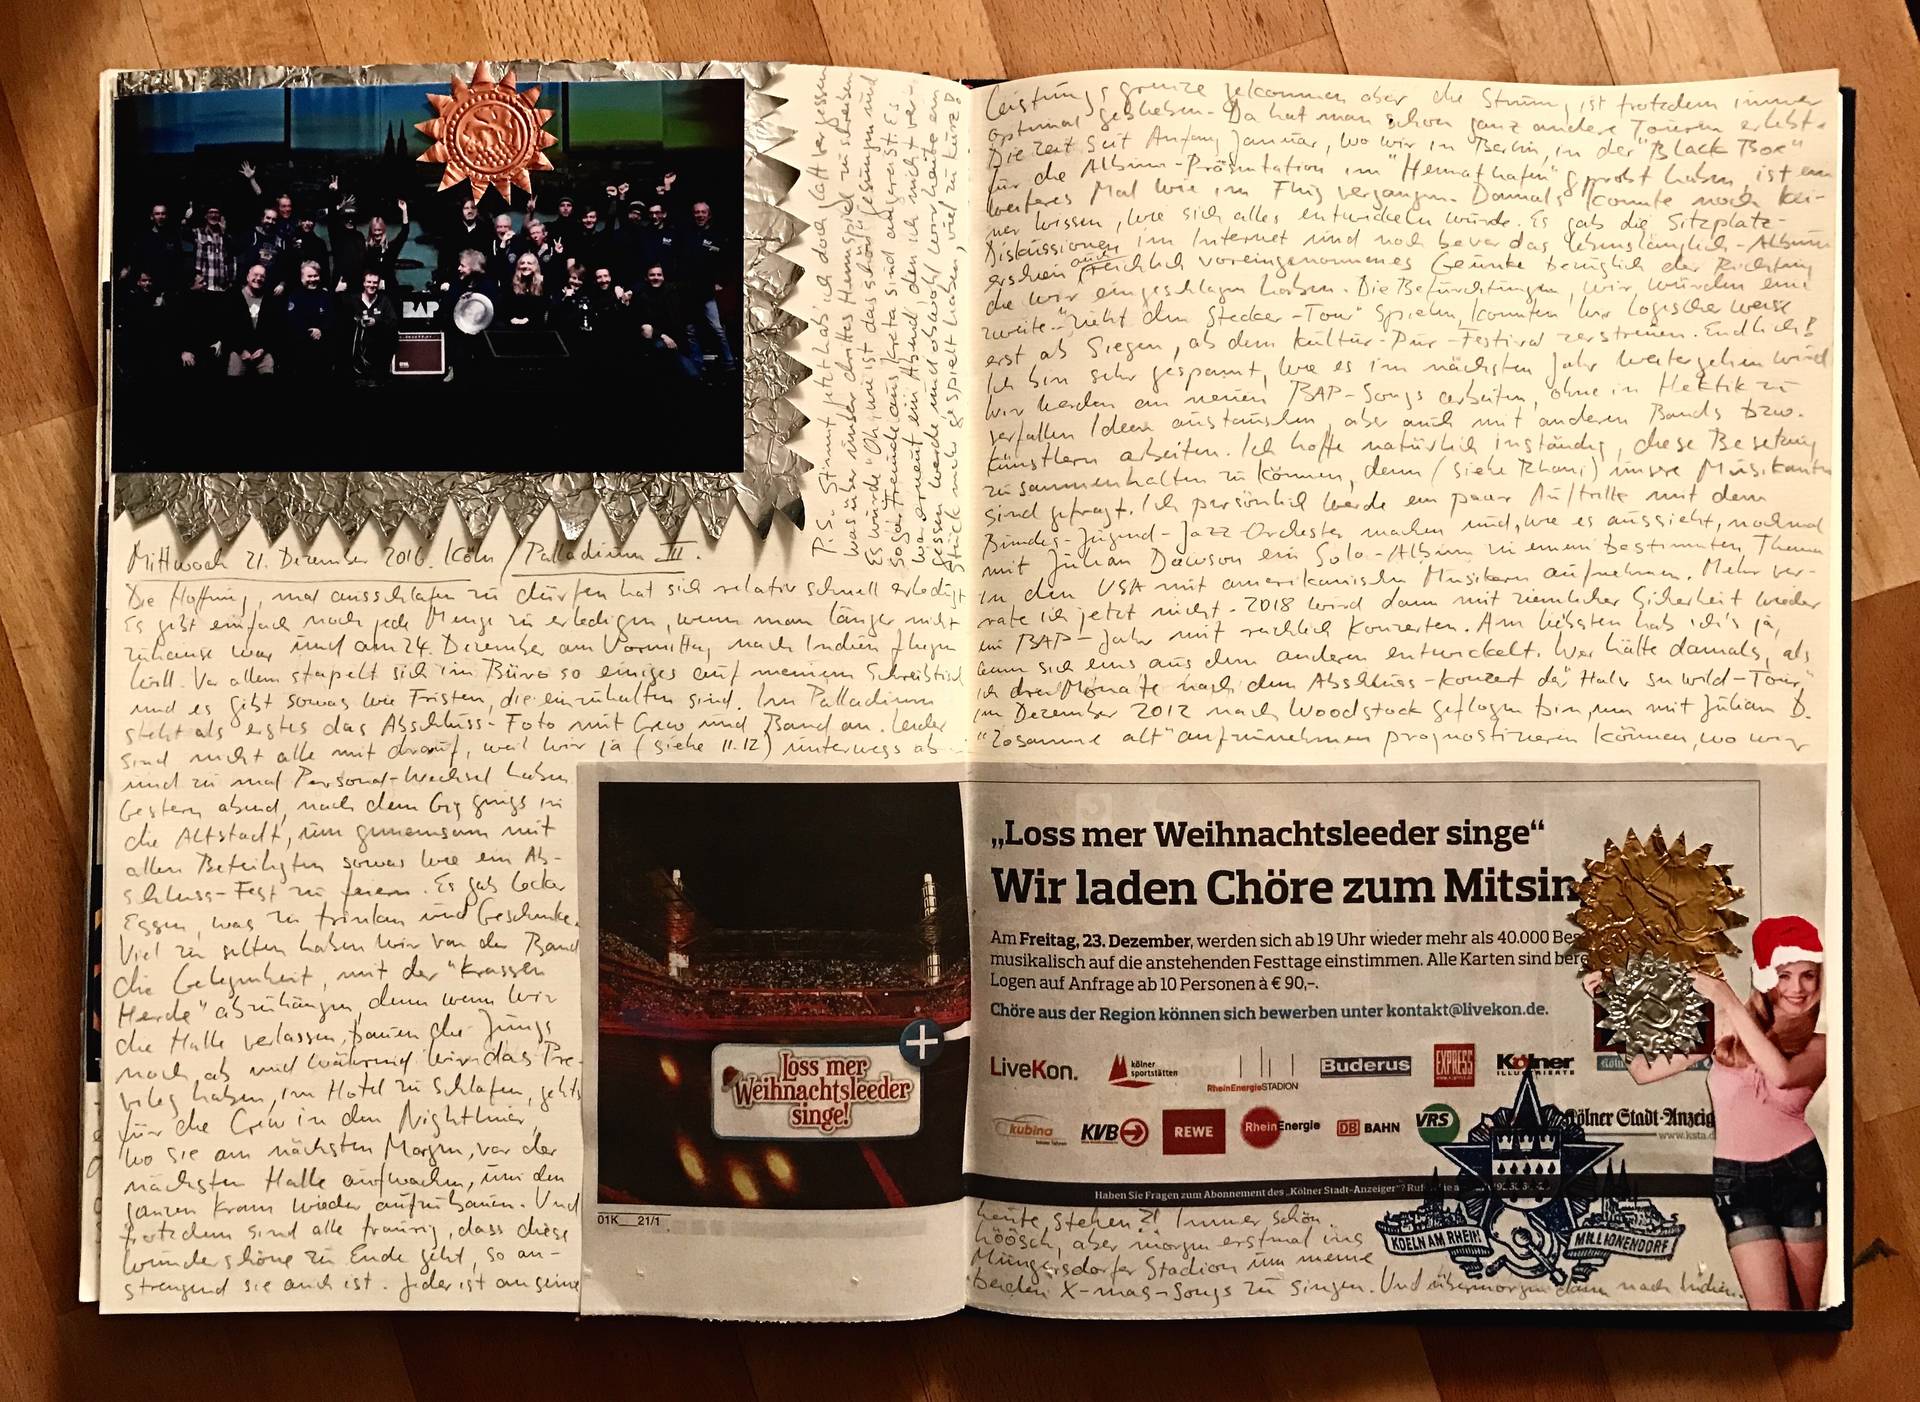 BAP
Mittwoch 21. Dezember 2016. Köln / Palladium III.
Die Hoffnung, mal ausschlafen zu dürfen hat sich relativ schnell erledigt
Es gibt einfach noch jede Menge zu erledigen, wenn man länger nicht
zuhause war und am 24. Dezember am Vormittag nach Indien fliegen
will. Vor allem stapelt sich im Büro so einiges auf meinem Schreibtisch
und es gibt sowas wie Fristen, die einzuhalten sind. Im Palladium
steht als erstes das Abschluss-Foto mit Crew und Band an. Leider
sind nicht alle mit drauf, weil wir ja (siehe 11.12) unterwegs ab
und zu mal Personal-Wechsel haben
Gestern abend, nach dem Gig gings in
die Altstadt, um gemeinsam mit
allen Beteiligten sowas wie ein Ab-
schluss-Fest zu feiern. Es gab lecker
Essen, was zu trinken und Geschenke.
Viel zu selten haben wir von der Band
die Gelegenheit, mit der "Krassen
Herde" abzuhängen, denn wenn wir
die Halle verlassen, bauen die Jungs
noch ab und während wir das Pri-
vileg haben, im Hotel zu schlafen, gehts
für die Crew in den Nightliner,
wo sie am nächsten Morgen, vor der
nächsten Halle aufwachen, um den
ganzen Kram wieder aufzubauen. Und
trotzdem sind alle traurig, dass diese
wunderschöne zu Ende geht, so an-
strengend sie auch ist. Jeder ist an seine
P.S. Stimmt, jetzt hab' ich doch glatt vergessen
was über unser drittes Heimspiel zu schreiben
Es wurde "Oh, wie ist das schön" gesungen und
sogar Freunde aus Kreta sind angereist. Es
war erneut ein Abend, den ich nicht ver-
gessen werde, und obwohl wir heute ein
Stück mehr gespielt haben, viel zu kurz!
Leistungsgrenze gekommen aber die Stimmung ist trotzdem immer
optimal geblieben. Da hat man schon ganz andere Touren erlebt.
Die Zeit seit Anfang Januar, wo wir in Berlin, in der "Black Box"
für die Album-Präsentation im "Heimathafen" geprobt haben, ist ein
weiteres Mal wie im Flug vergangen. Damals konnte noch kei-
ner wissen, wie sich alles entwickeln würde. Es gab die Sitzplatz-
Diskussionen im Internet und noch bevor das Lebenslänglich-Album
erschien auch reichlich voreingenommenes Geunke bezüglich der Richtung
die wir eingeschlagen haben. Die Befürchtungen, wir würden eine
zweite "Zieht den Stecker-Tour" spielen, konnten wir logischerweise
erst ab Siegen, ab dem Kultur-Pur-Festival zerstreuen. Endlich!
Ich bin sehr gespannt, wie es im nächsten Jahr weitergehen wird
Wir werden an neuen BAP-Songs arbeiten, ohne in Hektik zu
verfallen Ideen austauschen, aber auch mit anderen Bands bzw.
Künstlern arbeiten. Ich hoffe natürlich inständig, diese Besetzung
zusammenhalten zu können, denn (siehe Rhani) unsere Musikanten
sind gefragt. Ich persönlich werde ein paar Auftritte mit dem
Bundes-Jugend-Jazz-Orchester machen und, wie es aussieht, nochmal
mit Julian Dawson ein Solo-Album zu einem bestimmten Thema
in den USA mit amerikanischen Musikern aufnehmen. Mehr ver-
rate ich jetzt nicht. 2018 wird dann mit ziemlicher Sicherheit wieder
ein BAP-Jahr mit reichlich Konzerten. Am liebsten hab ich's ja,
wenn sich eins aus dem anderen entwickelt. Wer hätte damals, als
ich drei Monate nach dem Abschluss-Konzert der "Halv su wild-Tour"
im Dezember 2012 nach Woodstock geflogen bin, um mit Julian D.
"Zosamme alt" aufzunehmen prognostizieren können, wo wir
heute stehen?! Immer schön
höösch, aber morgen erstmal ins
Müngersdorfer Stadion um meine
beiden X-mas-Songs zu singen. Und übermorgen dann nach Indien.
Loss mer
Weihnachtsleeder
singe!
01K__21/1
„Loss mer Weihnachtsleeder singe“
Wir laden Chöre zum Mitsin
Am Freitag, 23. Dezember, werden sich ab 19 Uhr wieder mehr als 40.000 Bes
musikalisch auf die anstehenden Festtage einstimmen. Alle Karten sind bere
Logen auf Anfrage ab 10 Personen à € 90,–.
Chöre aus der Region können sich bewerben unter kontakt@livekon.de.
LiveKon. kölner sportstätten RheinEnergieSTADION Buderus EXPRESS Kölner ILLUSTRIERTE
kubina KVB REWE RheinEnergie DB BAHN VRS Kölner Stadt-Anzeig
www.ksta.d
Haben Sie Fragen zum Abonnement des „Kölner Stadt-Anzeiger“?
KOELN AM RHEIN
MILLIONENDORF